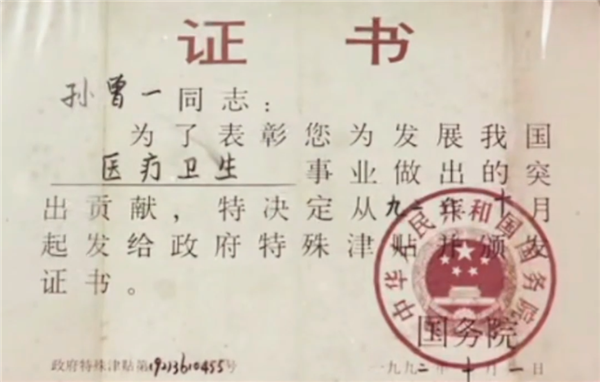 证书
孙曾一同志：
为了表彰您为发展我国
医疗卫生事业做出的突
出贡献，特决定从九二年十月
起发给政府特殊津贴并颁发
证书。
中华人民共和国国务院
国务院
政府特殊津贴第(92)3610455号
一九九二年十月一日